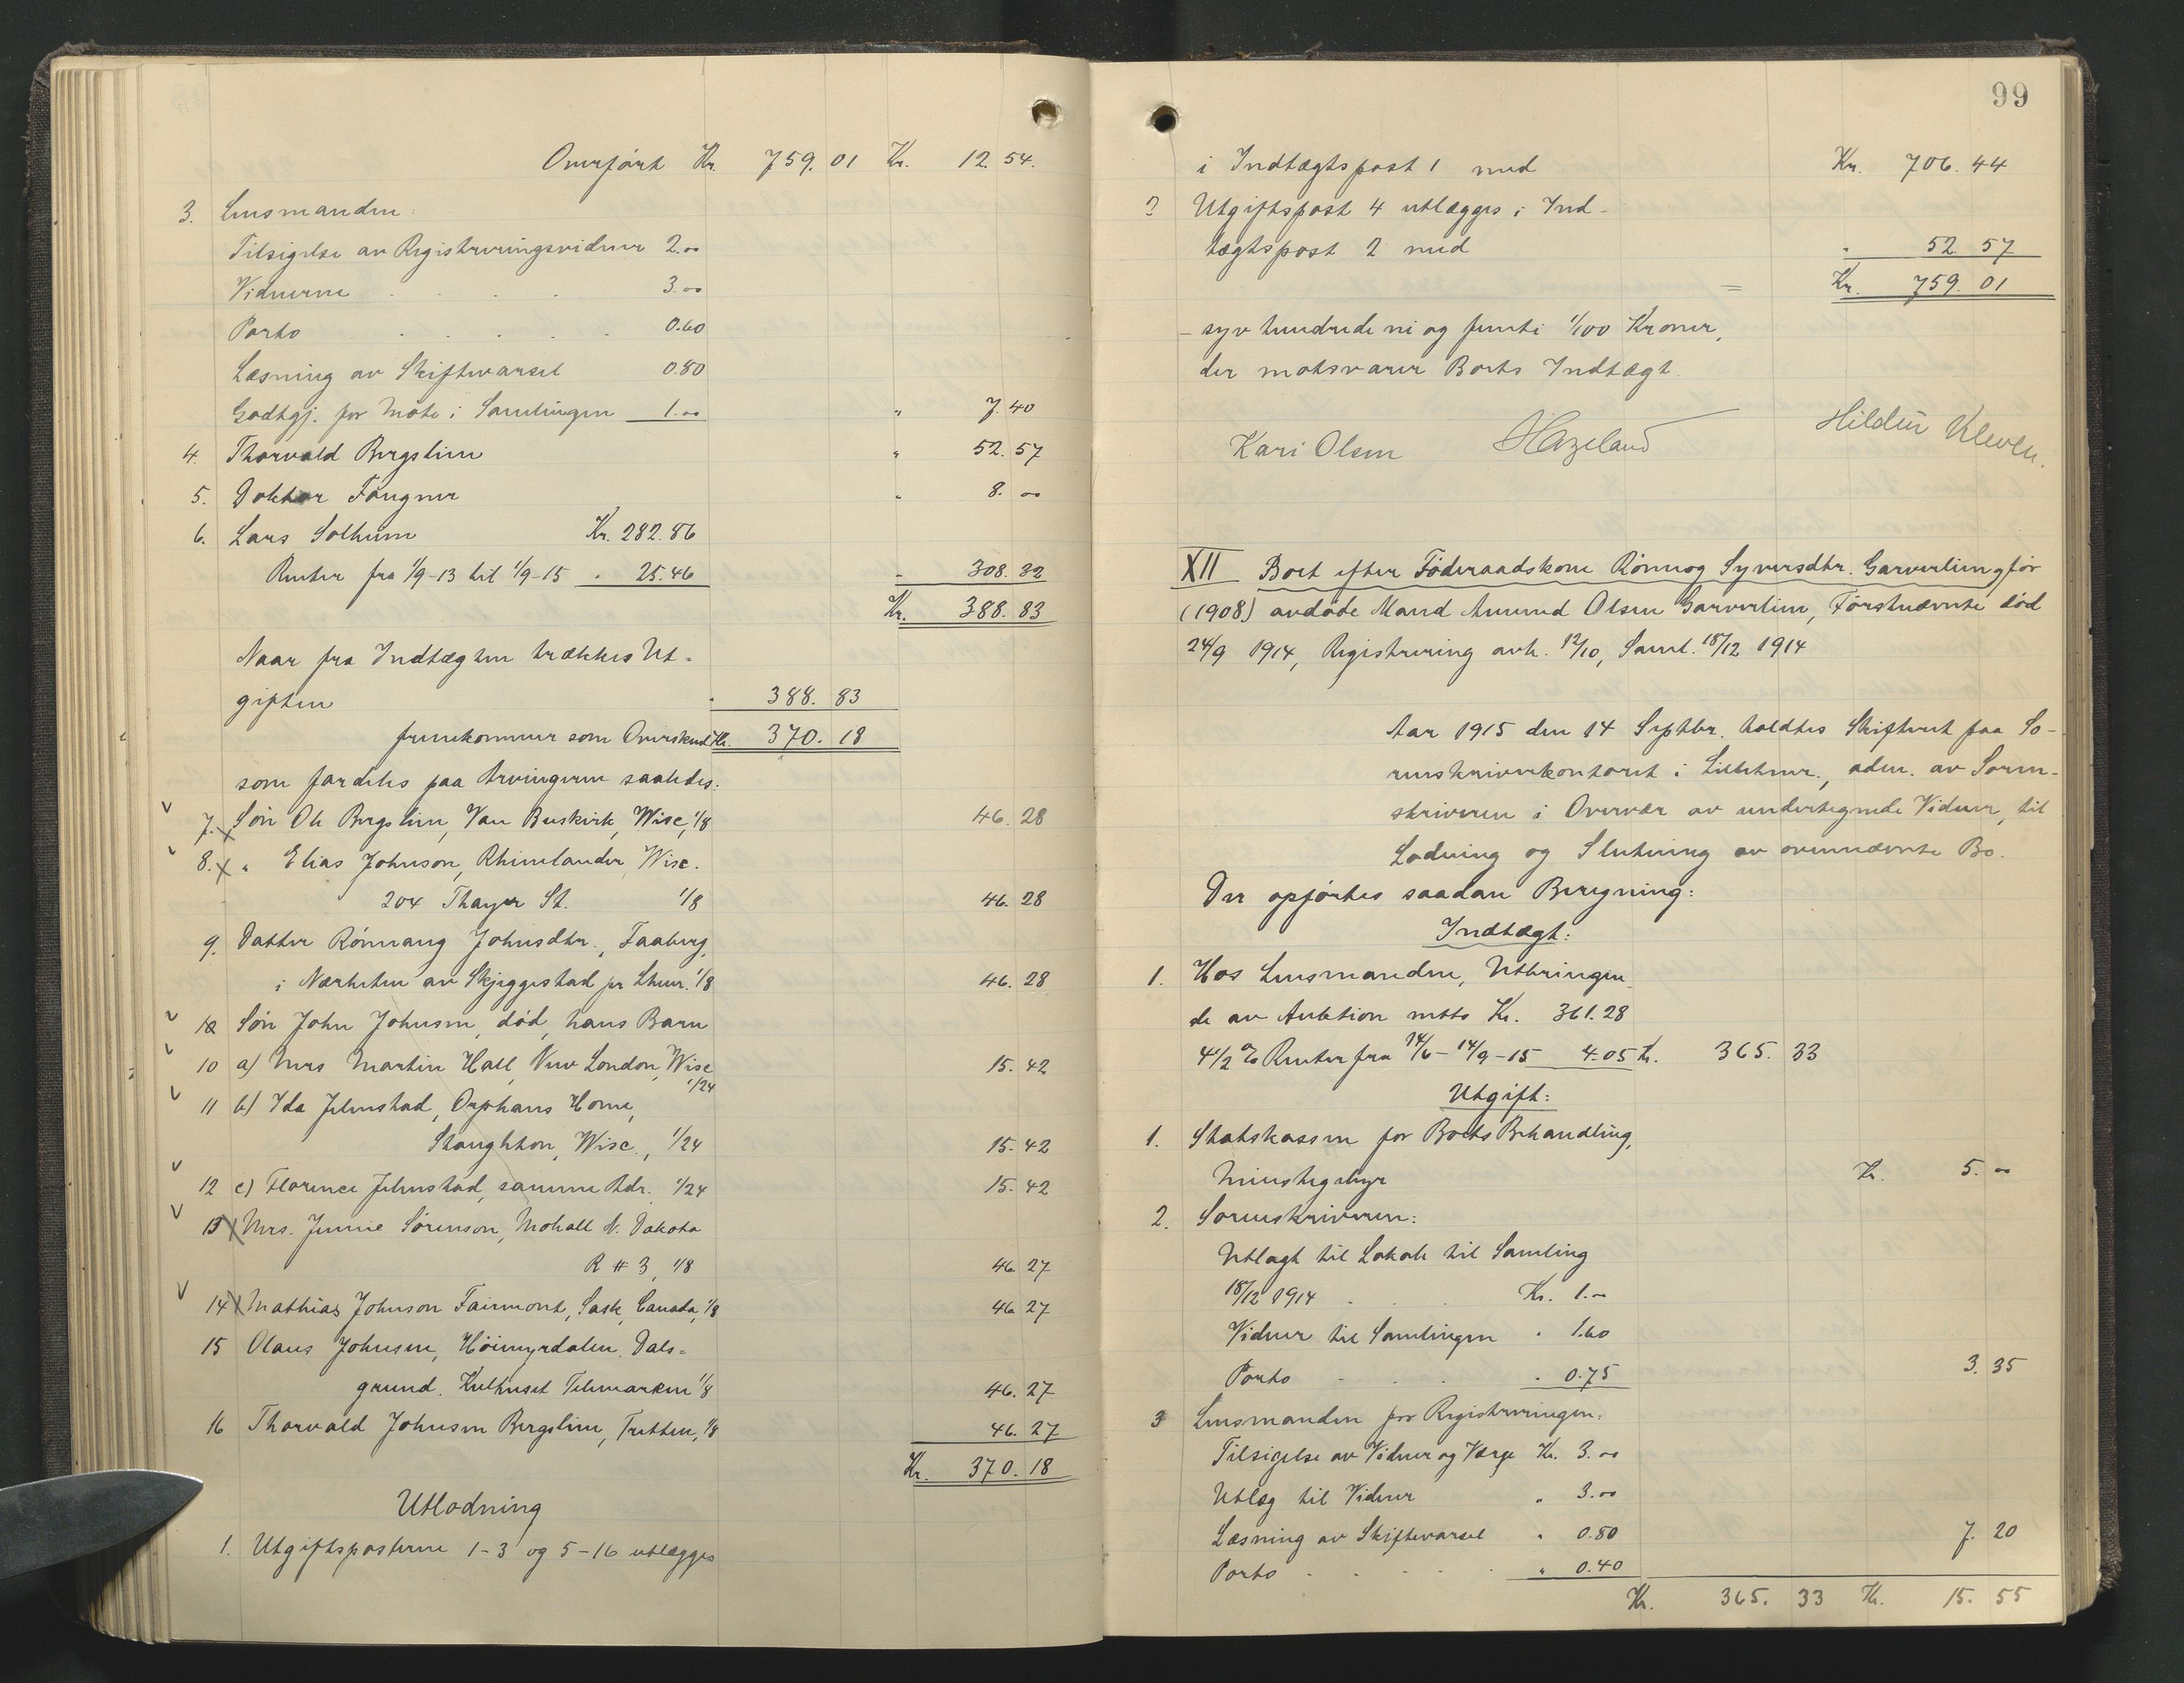 Overført Kr. 759.01 Kr. 12.54.
3. Lensmanden:
Tilsigelse av Registreringsvidner 2.00
Vidnerne 3.00
Porto 0.60
Læsning av Skiftevarsel 0.80
Godtgj. for Møte i Samlingen 1.00 " 7.40
4. Thorvald Bergslien " 52.57
5. Doktor Fougner " 8.00
6. Lars Solheim Kr. 282.86
Renter fra 1/9-13 til 1/9-15 " 25.46 " 308.32
Kr. 388.83
Naar fra Indtægten trækkes Ut-
giften " 388.83
fremkommer som Overskud Kr. 370.18
som fordeles paa Arvingerne saaledes:
7. Søn Ole Bergslien, Van Buskirk, Wisc, 1/8 46.28
8. " Elias Johnson, Rhinelander, Wisc.
204 Thayer St. 1/8 46.28
9. Datter Rønnaug Johnsdtr., Faaberg,
i Nærheten av Skjeggestad pr Lhmr. 1/8 46.28
Søn John Johnsen, død, hans Barn
10 a) Mrs Martin Hall, New London, Wisc
1/24 15.42
11 b) Ida Jelmstad, Orphans Home,
Stoughton, Wisc., 1/24 15.42
12 c) Florence Jelmstad, samme Adr. 1/24 15.42
13 Mrs. Jennie Sørenson, Mohall N. Dakota
R # 3, 1/8 46.27
14 Mathias Johnson Fairmont, Sask, Canada, 1/8 46.27
15 Olaus Johnsen, Høimyrdalen, Dals-
grund, Kulhuset Telemarken 1/8 46.27
16 Thorvald Johnsen Bergslien, Tretten, 1/8 46.27
Kr. 370.18
Utlodning
1. Utgiftsposterne 1-3 og 5-16 utlægges
99
i Indtægtspost 1 med Kr. 706.44
2 Utgiftspost 4 utlægges i Ind-
tægtspost 2 med " 52.57
= Kr. 759.01
- syv hundrede ni og femti 1/100 Kroner,
der motsvarer Boets Indtægt.
Kari Olsen Hazeland Hildur Kleven.
XII Boet efter Føderaadskone Rønnog Syversdtr. Garverlien og før
(1908) avdøde Mand Amund Olsen Garverlien, Førstnævnte død
24/9 1914, Registrering avh. 12/10, Saml. 18/12 1914
Aar 1915 den 14 Septbr. holdtes Skifteret paa So-
renskriverkontoret i Lillehmr., adm. av Soren-
skriveren i Overvær av undertegnede Vidner, til
Lodning og Slutning av ovennævnte Bo.
Der opførtes saadan Beregning:
Indtægt:
1. Hos Lensmanden, Utbringen-
de av Auktion netto Kr. 361.28
4 1/2 % Renter fra 14/6-14/9-15 4.05 Kr. 365.33
Utgift:
1. Statskassen for Boets Behandling,
Minstegebyr Kr. 5.00
2. Sorenskriveren:
Utlagt til Lokale til Samling
18/12 1914 Kr. 1.00
Vidner til Samlingen " 1.60
Porto " 0.75 3.35
3 Lensmanden for Registreringen:
Tilsigelse av Vidner og Værge Kr. 3.00
Utlæg til Vidner " 3.00
Læsning av Skiftevarsel " 0.80
Porto " 0.40 7.20
Kr. 365.33 Kr. 15.55